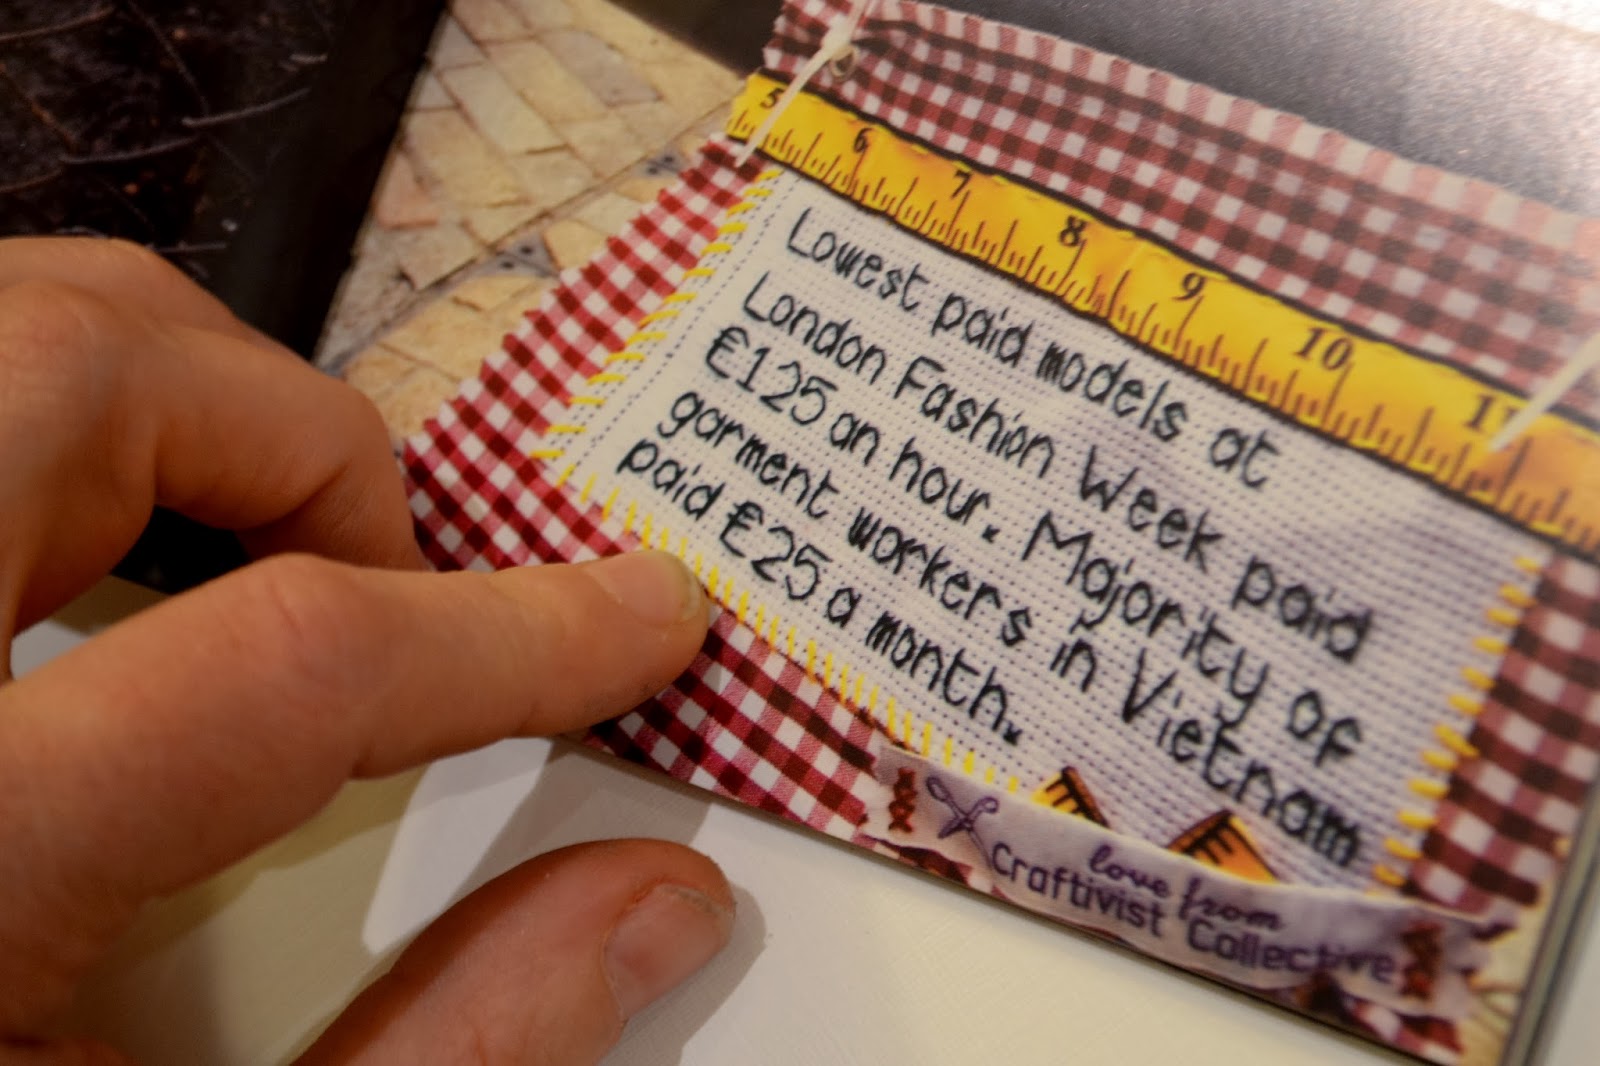 5 6 7 8 9 10 11
Lowest paid models at
London Fashion Week paid
€125 an hour. Majority of
garment workers in Vietnam
paid €25 a month.
love from
Craftivist Collective